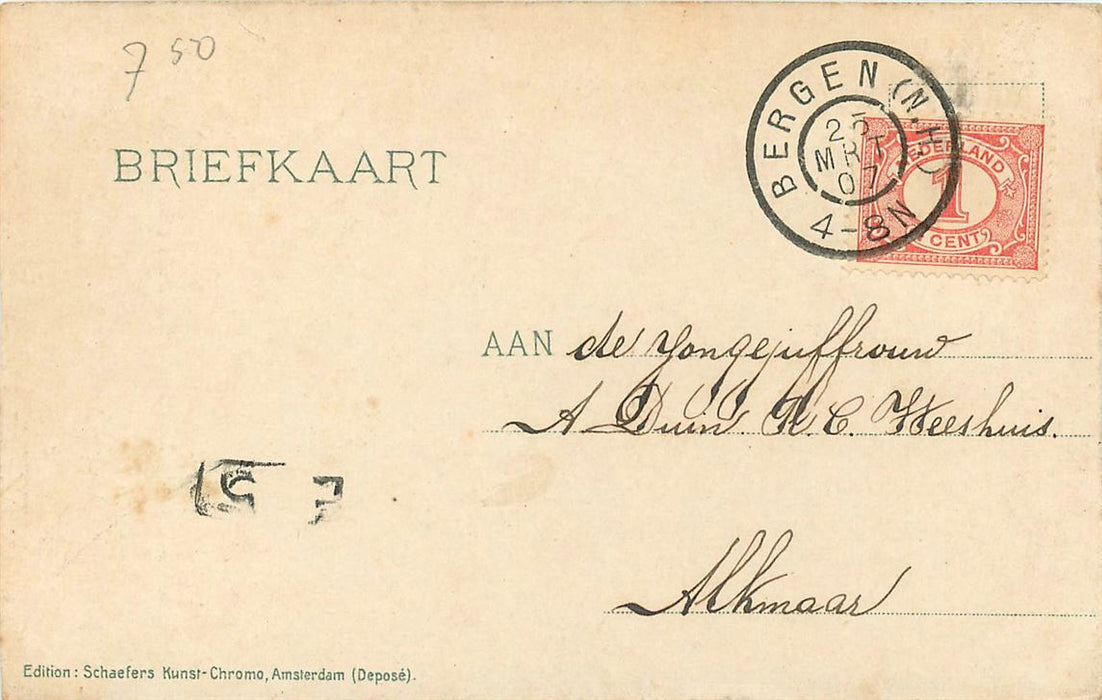 7 50
BRIEFKAART
BERGEN (N.H.)
25
MRT
07
4-8N
NEDERLAND
1
1 CENT
AAN de Jongejuffrouw
A Duin R. C. Weeshuis.
Alkmaar
Edition: Schaefers Kunst-Chromo, Amsterdam (Deposé).